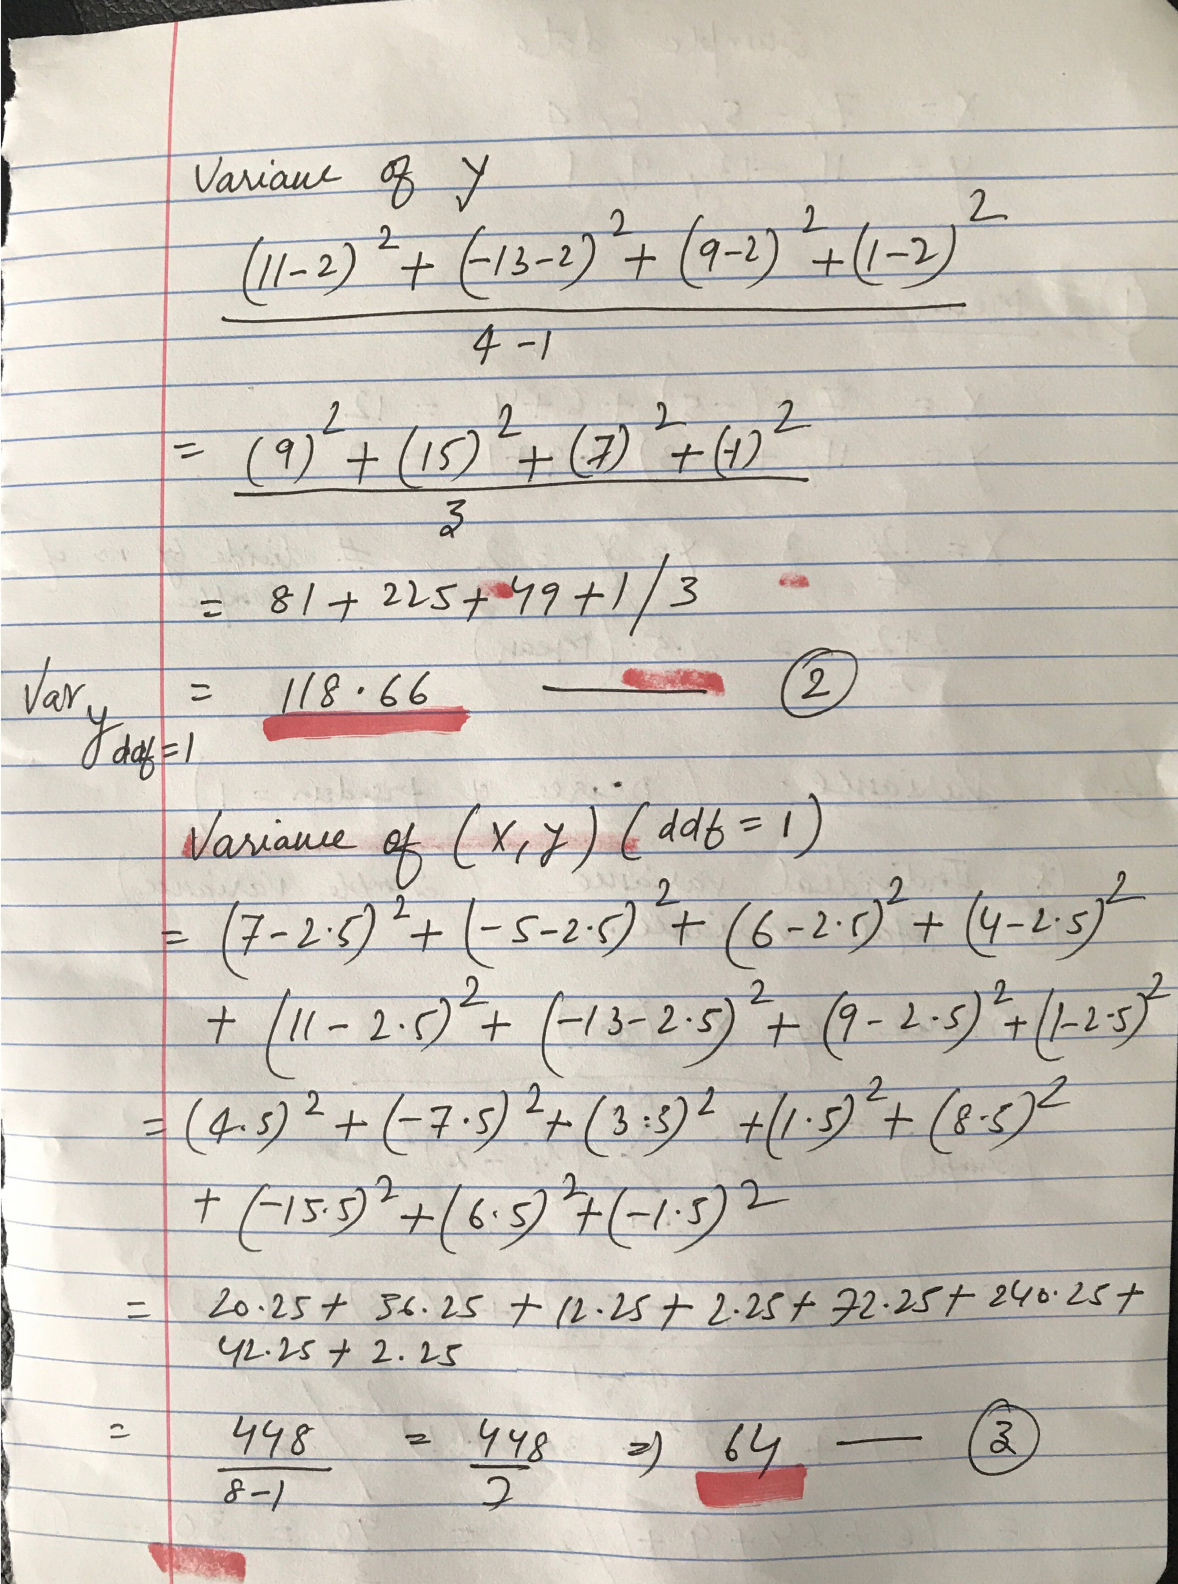 Variance of y
(11-2)² + (-13-2)² + (9-2)² + (1-2)²
4-1
= (9)² + (15)² + (7)² + (-1)²
3
= 81 + 225 + 49 + 1/3
Var y ddf=1 = 118.66 —— ②
Variance of (x, y) (ddf = 1)
= (7-2.5)² + (-5-2.5)² + (6-2.5)² + (4-2.5)²
+ (11-2.5)² + (-13-2.5)² + (9-2.5)² + (1-2.5)²
= (4.5)² + (-7.5)² + (3.5)² + (1.5)² + (8.5)²
+ (-15.5)² + (6.5)² + (-1.5)²
= 20.25 + 56.25 + 12.25 + 2.25 + 72.25 + 240.25 +
42.25 + 2.25
= 448/8-1 = 448/7 => 64 —— ③